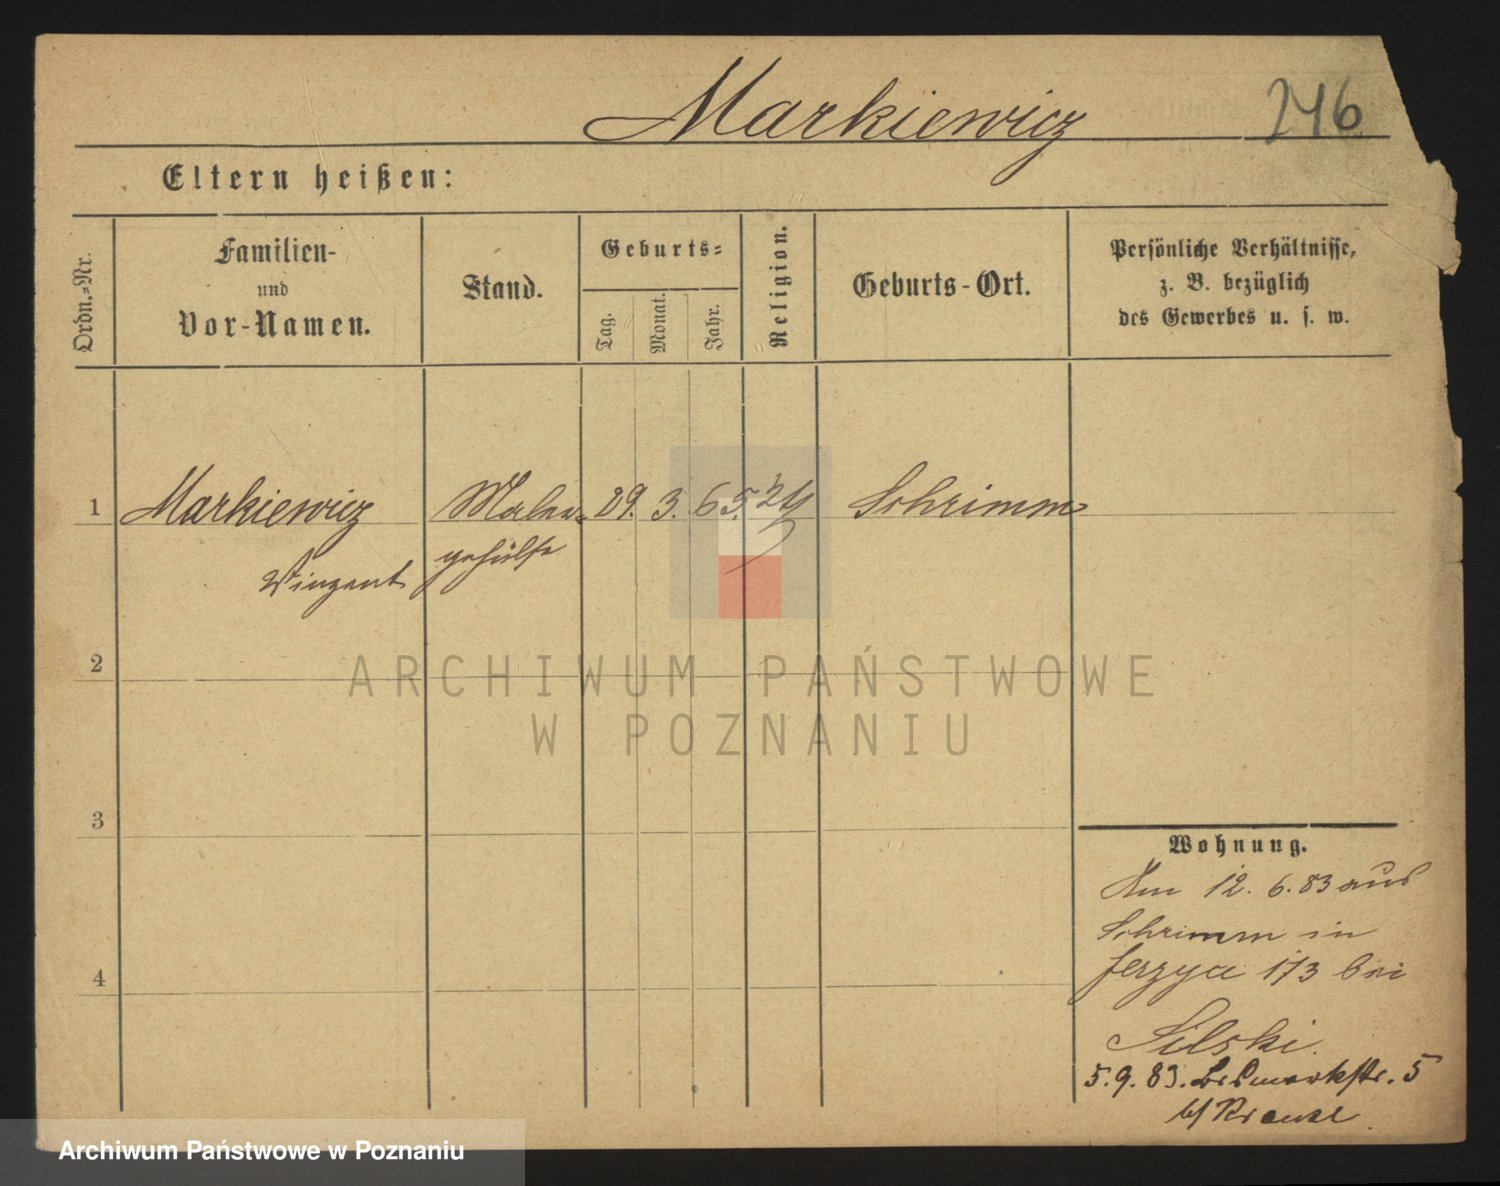 Markiewicz
246
Eltern heißen:
Ordn.=Nr.
Familien-
und
Vor-Namen.
Stand.
Geburts=
Tag.
Monat.
Jahr.
Religion.
Geburts-Ort.
Persönliche Verhältnisse,
z. B. bezüglich
des Gewerbes u. s. w.
1 Markiewicz Maler= 29. 3. 65. Schrimm
Vinzent gehülfe
2
ARCHIWUM PAŃSTWOWE
W POZNANIU
3
Wohnung.
Am 12. 6. 83 aus
Schrimm in
Jerzyce 173 bei
Silski.
4
5. 9. 83. Bismarkstr. 5
b/
Archiwum Państwowe w Poznaniu